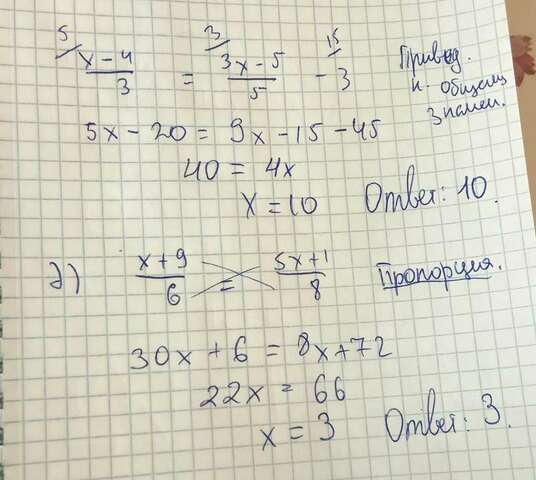 5/ (x-4)/3 = 3/ (3x-5)/5 - 15/ 3 Привед. к общему знамен.
5x-20 = 9x-15-45
40 = 4x
x = 10 Ответ: 10.
2) (x+9)/6 = (5x+1)/8 Пропорция.
30x+6 = 8x+72
22x = 66
x = 3 Ответ: 3.